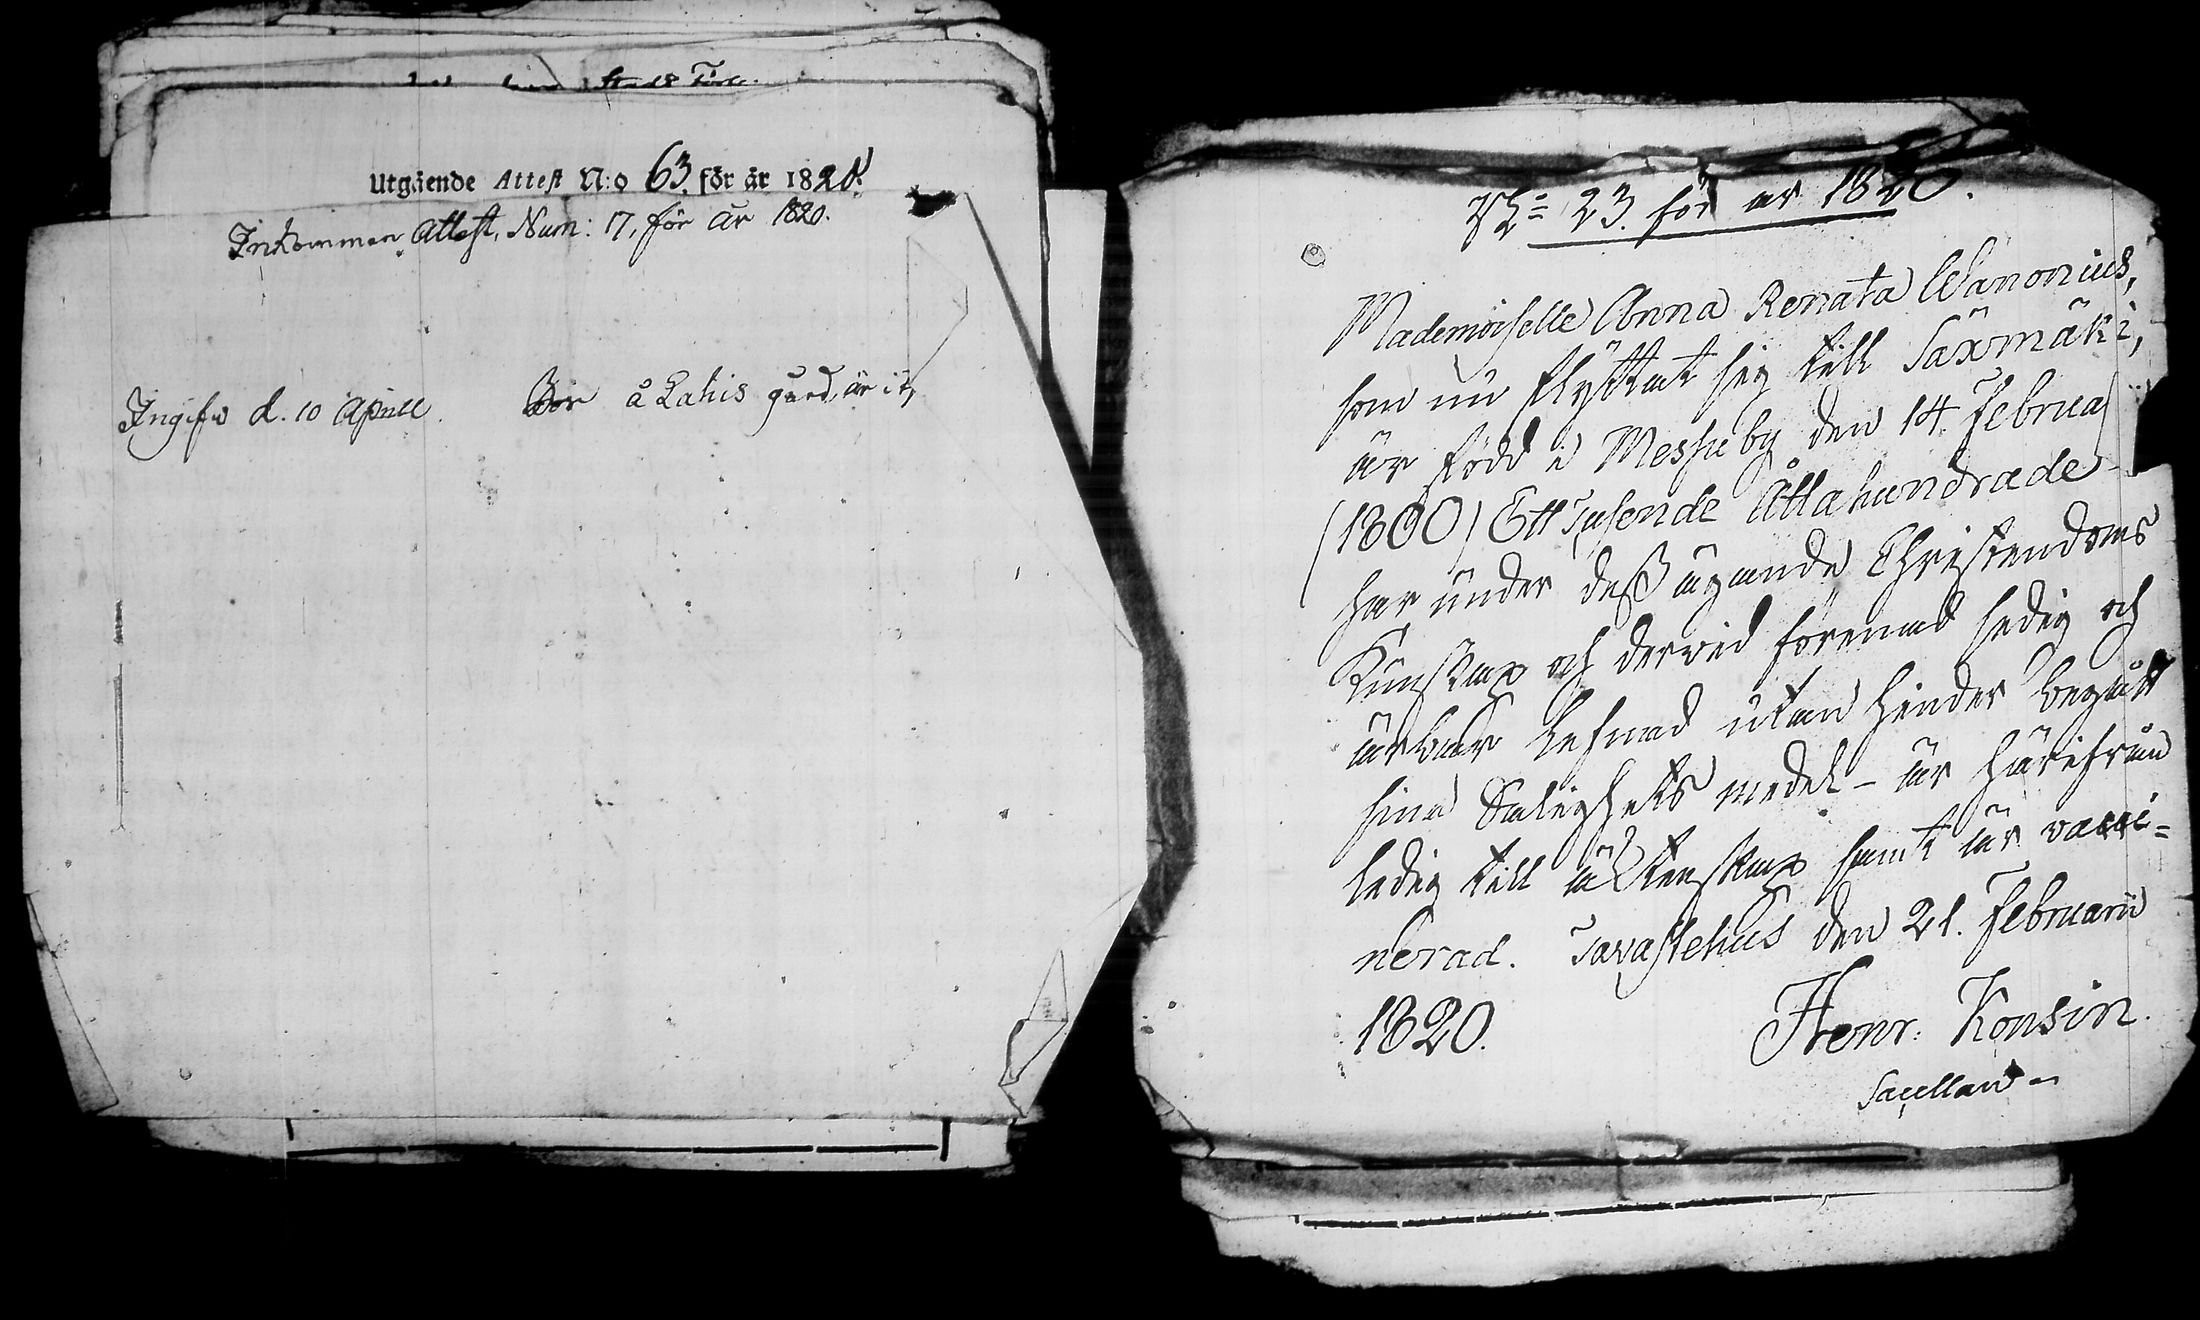 Utgående Attest N:o 63. för år 1820.
Inkommen Attest, Num: 17, för år 1820.
Ingifv. d. 10 Aprill. Bor å Lahis gård,
No 23. för år 1820.
Mademoiselle Anna Renata Wanonius,
som nu flyttat sig till Säxmäki,
är född i Messuby den 14. Februa
(1800) Ett Tusende Åttahundrade
har under dess ägande Christendoms
Kunskap och dervid förenad sedig och
ärbar lefnad utan hinder begått
sina Salighets medel - är härifrån
ledig till äktenskap samt är vacci=
nerad. Tavastehus den 21. Februarii
1820. Henr: Konsin.
Sacellan